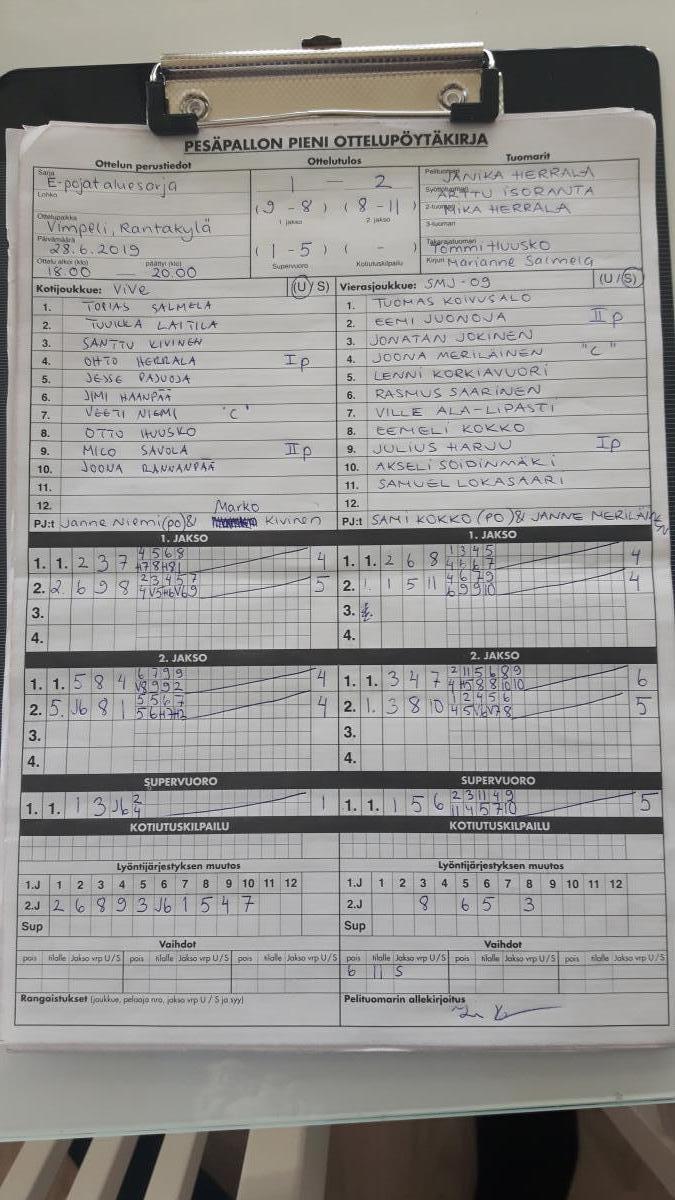 PESÄPALLON PIENI OTTELUPÖYTÄKIRJA
Ottelun perustiedot Ottelutulos Tuomarit
Sarja E-pojat aluesarja
Lohko
Ottelupaikka Vimpeli, Rantakylä
Päivämäärä 28.6.2019
Ottelu alkoi (klo) päättyi (klo)
18.00 — 20.00
1 — 2
(9 - 8) (8 - 11)
1. jakso 2. jakso
(1 - 5) ( - )
Supervuoro Kotiutuskilpailu
Pelituomari JANIKA HERRALA
ARTTU ISORANTA
2-tuomari MIKA HERRALA
3-tuomari
Takarajatuomari Tommi Huusko
Kirjuri Marianne Salmela
Kotijoukkue: ViVe (U/S)
1. TOBIAS SALMELA
2. TUUKKA LAITILA
3. SANTTU KIVINEN
4. OHTO HERRALA I p
5. JESSE PASUOJA
6. JIMI HAANPÄÄ
7. VEETI NIEMI "C"
8. OTTO HUUSKO
9. MICO SAVOLA II p
10. JOONA RANNANPÄÄ
11.
12.
Marko
PJ:t Janne Niemi (po) & Kivinen
Vierasjoukkue: SMJ-09 (U/S)
1. TUOMAS KOIVUSALO
2. EEMI JUONOJA II p
3. JONATAN JOKINEN
4. JOONA MERILÄINEN "C"
5. LENNI KORKIAVUORI
6. RASMUS SAARINEN
7. VILLE ALA-LIPASTI
8. EEMELI KOKKO
9. JULIUS HARJU I p
10. AKSELI SOIDINMÄKI
11. SAMUEL LOKASAARI
12.
PJ:t SAMI KOKKO (PO) & JANNE MERILÄINEN
1. JAKSO
1. 1. 2 3 7 4 5 6 8 4
2. 2. 6 9 8 2 3 4 5 7 5
3.
4.
1. JAKSO
1. 1. 2 6 8 1 3 4 5 4
2. 1. 1 5 11 4
3.
4.
2. JAKSO
1. 1. 5 8 4 6 7 9 9 4
2. 5. J6 8 1 5 5 6 7 4
3.
4.
2. JAKSO
1. 1. 3 4 7 2 11 5 6 8 9 6
2. 1. 3 8 10 1 2 4 5 6 5
3.
4.
SUPERVUORO
1. 1. 1 3 J6 2 4 1
SUPERVUORO
1. 1. 1 5 6 2 3 11 4 9 5
KOTIUTUSKILPAILU
KOTIUTUSKILPAILU
Lyöntijärjestyksen muutos
1.J 1 2 3 4 5 6 7 8 9 10 11 12
2.J 2 6 8 9 3 J6 1 5 4 7
Sup
Lyöntijärjestyksen muutos
1.J 1 2 3 4 5 6 7 8 9 10 11 12
2.J 8 6 5 3
Sup
Vaihdot
pois tilalle Jakso vrp U/S pois tilalle Jakso vrp U/S pois tilalle Jakso vrp U/S
Vaihdot
pois tilalle Jakso vrp U/S pois tilalle Jakso vrp U/S pois tilalle Jakso vrp U/S
6 11 S
Rangaistukset (joukkue, pelaaja nro, jakso vrp U / S ja syy)
Pelituomarin allekirjoitus